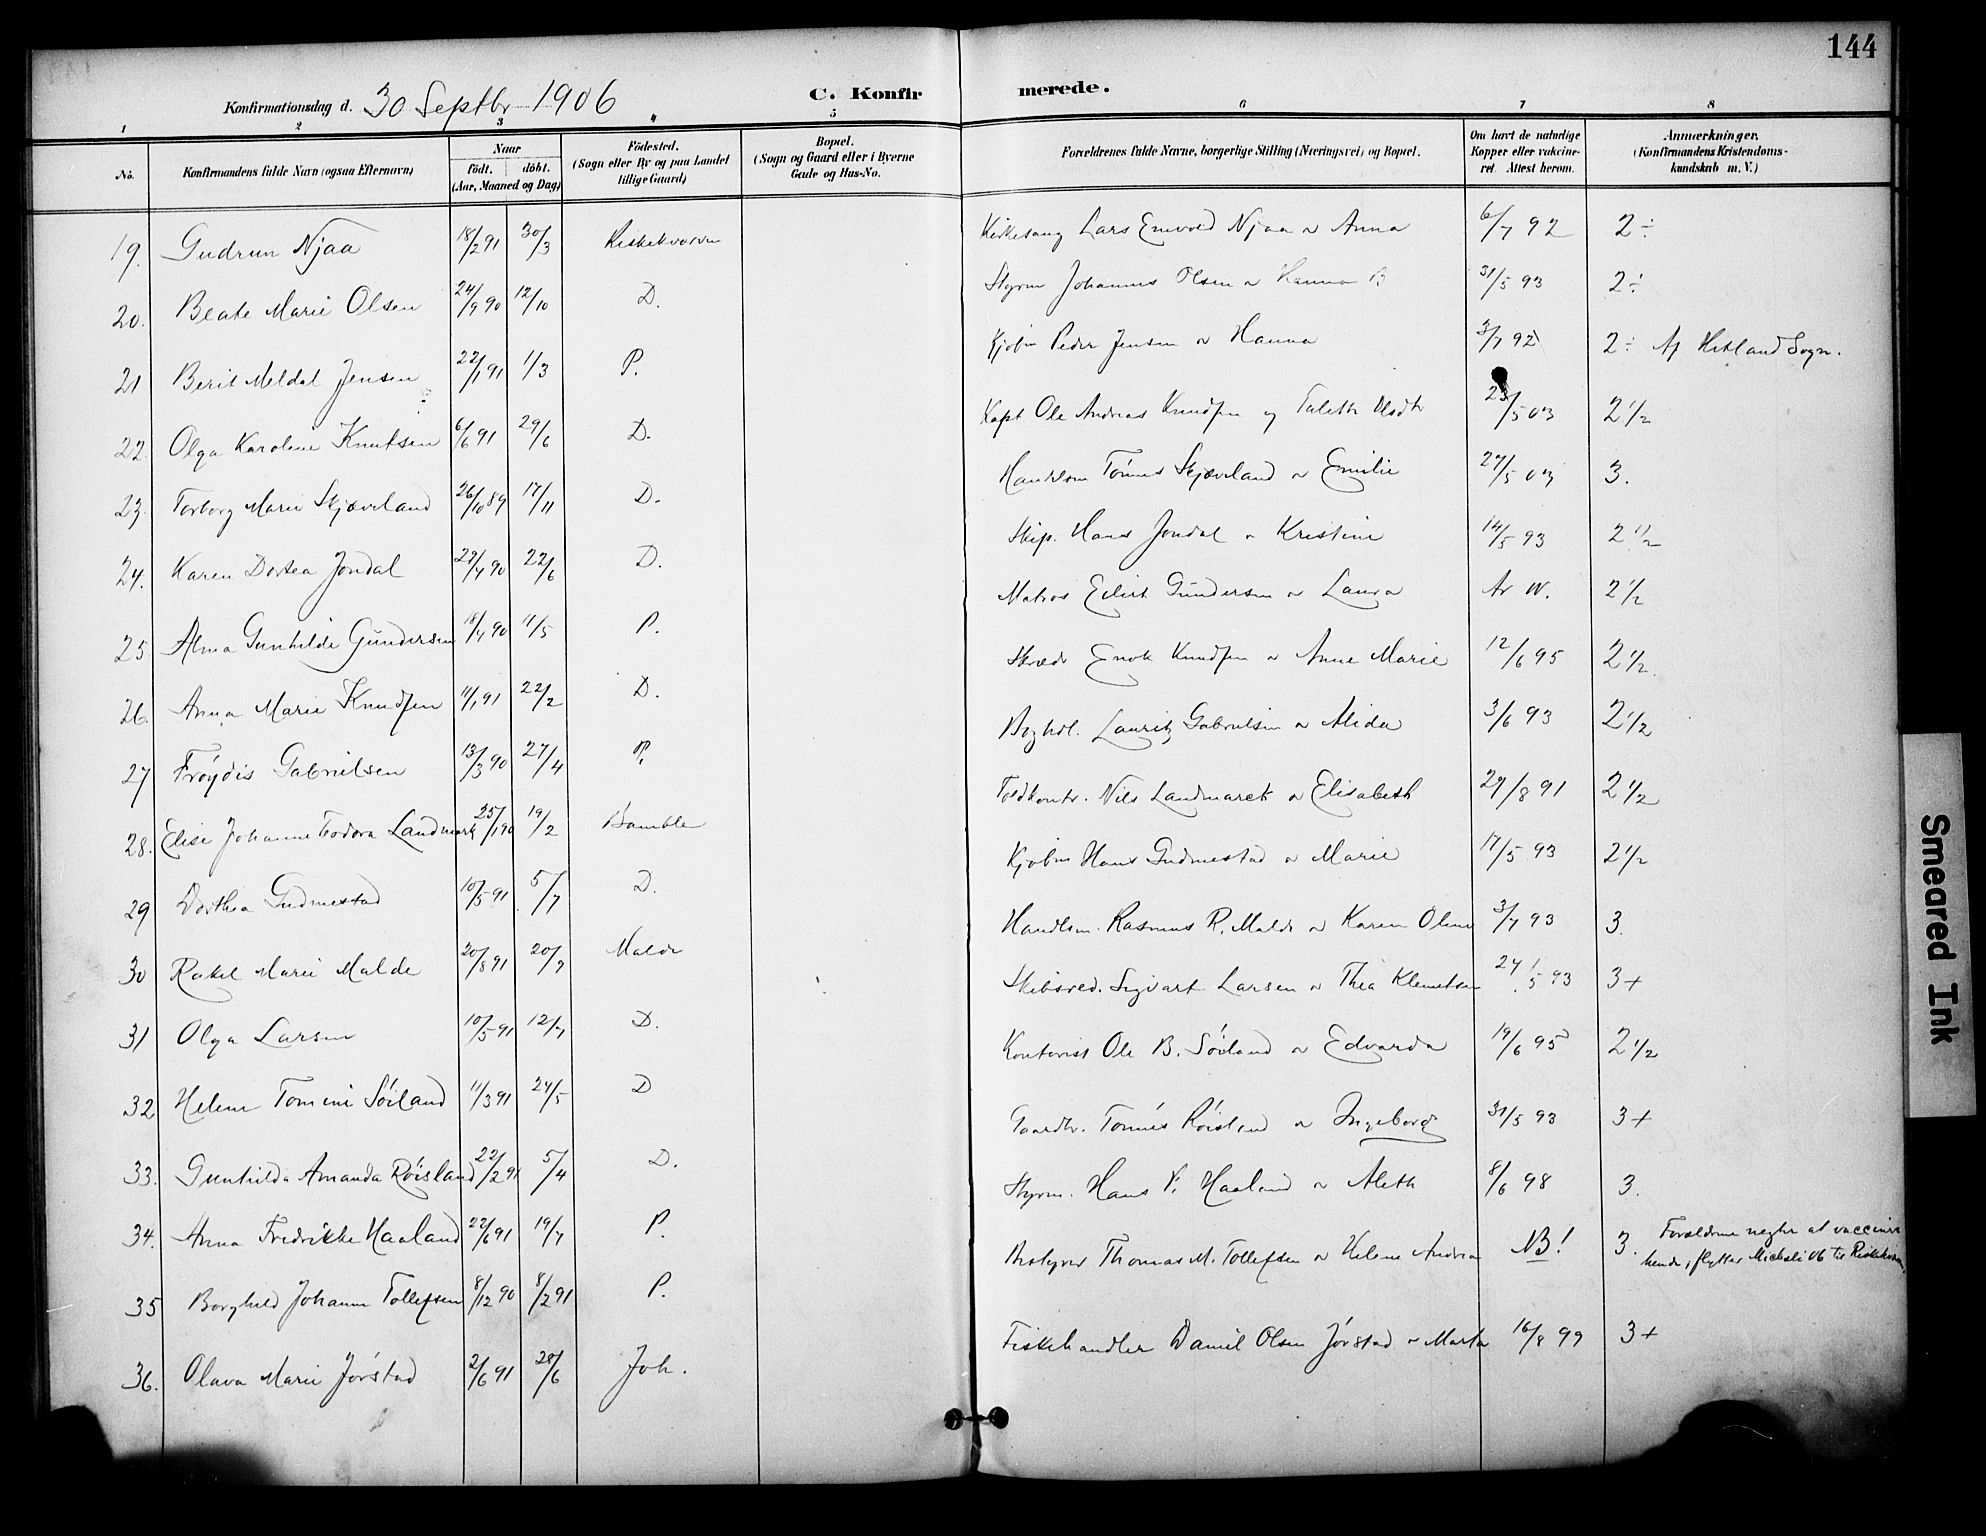 144
Konfirmationsdag d. 30 Septbr 1906
C. Konfirmerede.
1 2 3 4 5 6 7 8
No.
Konfirmandens fulde Navn (ogsaa Efternavn)
Naar
födt. döbt.
(Aar, Maaned og Dag)
Födested.
(Sogn eller By og paa Landet
tillige Gaard)
Bopæl.
(Sogn og Gaard eller i Byerne
Gade og Hus-No.
Forældrenes fulde Navne, borgerlige Stilling (Næringsvei) og Bopæl.
Om havt de naturlige
Kopper eller vakcine-
ret. Attest herom.
Anmærkninger.
(Konfirmandens Kristendoms-
kundskab m. V.)
19. Gudrun Njaa 18/2 91 30/3 Lars Enevold Njaa & Anna 6/7 92 2÷
20. Beate Marie Olsen 24/9 90 12/10 D. Styrm Johannes Olsen & Hanna B 31/5 93 2÷
21 Berit Meldal Jensen 22/1 91 1/3 P. Kjøbm Peder Jensen & Hanna 3/7 92 2÷ Af Hetland Sogn.
22. Olga Karoline Knutsen 6/6 91 29/6 D. Kapt Ole Andreas Knudsen og 23/5 03 2 1/2
23. Torborg Marie Skjæveland 26/10 89 17/11 D. Handelsm Tönnes Skjæveland & Emilie 27/5 03 3.
24. Karen Dortea Jondal 29/4 90 22/6 D. Skip. Hans Jondal & Kristine 14/5 93 2 1/2
25. Alma Gunhilde Gundersen 18/4 90 11/5 P. Matros Eilert Gundersen & Laura Ar W. 2 1/2
26. Anna Marie Knudsen 11/1 91 22/2 D. Skræd Enok Knudsen & Anne Marie 12/6 95 2 1/2.
27 Fröydis Gabrielsen 13/3 90 27/4 P. Boghdl. Lauritz Gabrielsen & Alida 3/6 93 2 1/2
28. Elise Johanne Todora Landmark 25/1 90 19/2 Bamble Toldkontr. Nils Landmarck & Elisabeth 29/8 91 2 1/2
29 Dorthea Gudmestad 10/5 91 5/7 D. Kjøbm Hans Gudmestad & Marie 17/5 93 2 1/2
30 Rakel Marie Malde 20/8 91 20/9 Malde Handlsm. Rasmus R. Malde & Karen Oline 3/7 93 3.
31 Olga Larsen 10/5 91 12/7 D. Skibsred. Sigvart Larsen & Thea Klemetsen 24/5 93 3+
32 Helene Tomine Söiland 11/3 91 24/5 D Kontorist Ole B. Söiland & Edvarda 19/6 95 2 1/2
33. Gunhilda Amanda Röisland 22/2 91 5/4 D. Gaardbr. Tönnes Röisland & Ingeborg 31/5 93 3+
34. Anna Fredrikke Haaland 22/6 91 19/7 P. Styrm. Hans V. Haaland & Aleth 8/6 98 3.
35 Borghild Johanne Tollefsen 8/12 90 8/2 91 P. Bestyrer Thomas M. Tollefsen & Helene Andrea NB! 3. Forældrene negter at vaccinere
hende, flytter Micheli 06 til Riskekværn.
36. Olava Marie Jörstad 2/6 91 28/6 Joh. Fiskehandler Daniel Olsen Jörstad & Marta 16/8 99 3+
Smeared Ink